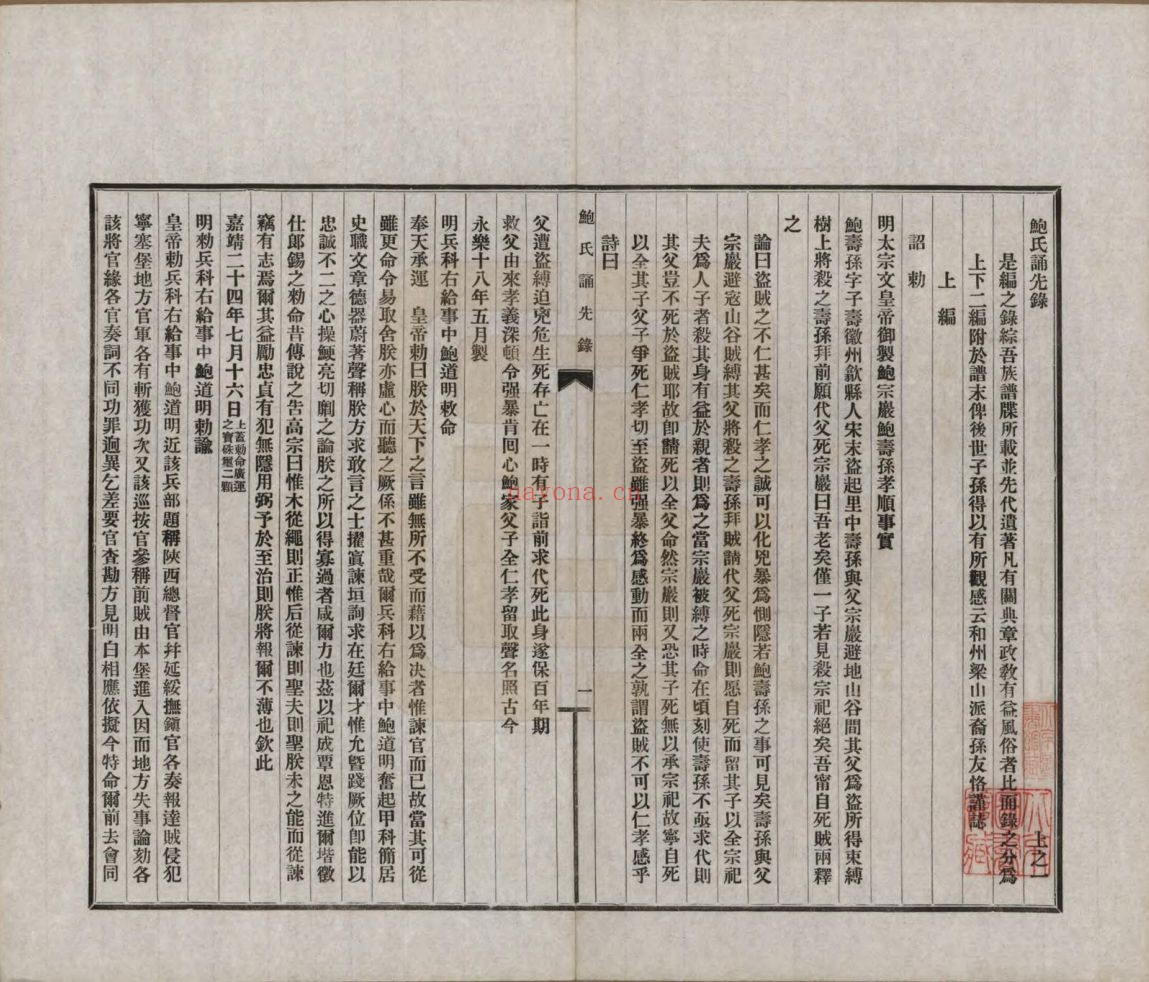 鮑氏誦先錄
上之一
是編之錄綜吾族譜牒所載並先代遺著凡有關典章政敎有益風俗者比而錄之分爲
上下二編附於譜末俾後世子孫得以有所觀感云和州梁山派裔孫友恪謹誌
上編
詔勅
明太宗文皇帝御製鮑宗巖鮑壽孫孝順事實
鮑壽孫字子壽徽州歙縣人宋末盜起里中壽孫與父宗巖避地山谷間其父爲盜所得束縛
樹上將殺之壽孫拜前願代父死宗巖曰吾老矣僅一子若見殺宗祀絕矣吾甯自死賊兩釋
之
論曰盜賊之不仁甚矣而仁孝之誠可以化兇暴爲惻隱若鮑壽孫之事可見矣壽孫與父
宗巖避宼山谷賊縛其父將殺之壽孫拜賊請代父死宗巖則愿自死而留其子以全宗祀
夫爲人子者殺其身有益於親者則爲之當宗巖被縛之時命在頃刻使壽孫不亟求代則
其父豈不死於盜賊耶故卽請死以全父命然宗巖則又恐其子死無以承宗祀故寧自死
以全其子父子爭死仁孝切至盜雖强暴終爲感動而兩全之孰謂盜賊不可以仁孝感乎
詩曰
鮑氏誦先錄
一
父遭盜縛迫兇危生死存亡在一時有子詣前求代死此身遂保百年期
救父由來孝義深頓令强暴肯囘心鮑家父子全仁孝留取聲名照古今
永樂十八年五月製
明兵科右給事中鮑道明敕命
奉天承運　皇帝勅曰朕於天下之言雖無所不受而藉以爲决者惟諫官而已故當其可從
雖更命令易取舍朕亦虛心而聽之厥係不甚重哉爾兵科右給事中鮑道明奮起甲科簡居
史職文章德器蔚著聲稱朕方求敢言之士擢寘諫垣詢求在廷爾才惟允曁踐厥位卽能以
忠誠不二之心操鯁亮切劘之論朕之所以得寡過者咸爾方也茲以祀成覃恩特進爾堦徵
仕郎錫之勅命昔傅說之告高宗曰惟木從繩則正惟后從諫則聖夫則聖朕未之能而從諫
竊有志焉爾其益勵忠貞有犯無隱用弼予於至治則朕將報爾不薄也欽此
嘉靖二十四年七月十六日上蓋勅命廣運之寶硃璽二顆
明勅兵科右給事中鮑道明勅諭
皇帝勅兵科右給事中鮑道明近該兵部題稱陝西總督官幷延綏撫鎭官各奏報達賊侵犯
寧塞堡地方官軍各有斬獲功次又該巡按官參稱前賊由本堡進入因而地方失事論劾各
該將官緣各官奏詞不同功罪迥異乞差要官查勘方見明白相應依擬今特命爾前去會同